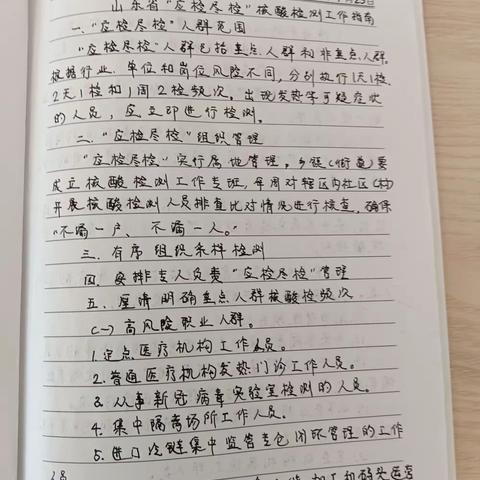 月25日
山东省“应检尽检”核酸检测工作指南
一、“应检尽检”人群范围
“应检尽检”人群包括重点人群和非重点人群。
根据行业、单位和岗位风险不同，分别执行1天1检、
2天1检和1周2检频次。出现发热等可疑症状
的人员，应立即进行检测。
二、“应检尽检”组织管理
“应检尽检”实行属地管理，乡镇（街道）要
成立核酸检测工作专班，每周对辖区内社区（村）
开展核酸检测人员排查比对情况进行核查，确保
“不漏一户、不漏一人。”
三、有序组织采样检测
四、安排专人负责“应检尽检”管理
五、厘清明确重点人群核酸检频次
（一）高风险职业人群。
1.定点医疗机构工作人员。
2.普通医疗机构发热门诊工作人员。
3.从事新冠病毒实验室检测的人员。
4.集中隔离场所工作人员.
5.进口冷链集中监管专仓闭环管理的工作